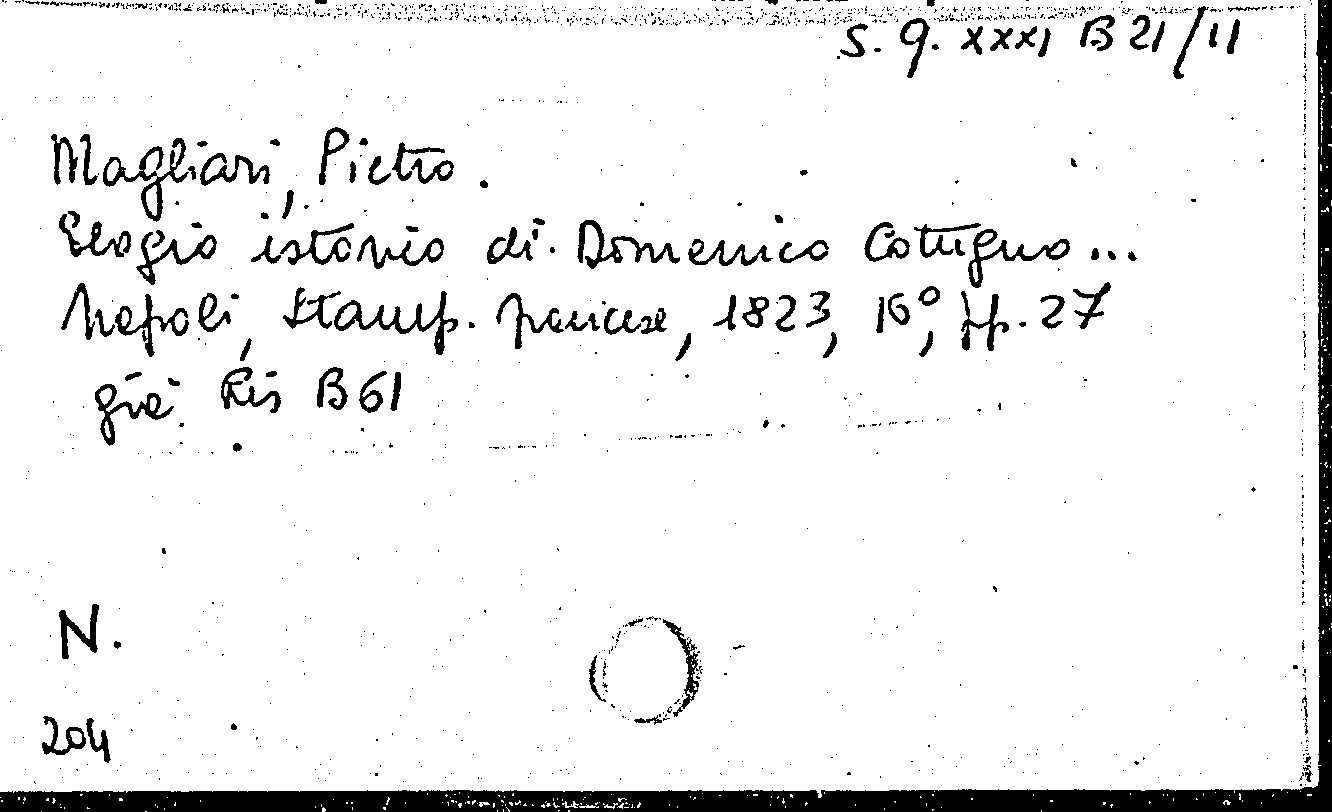 S. q. XXXI B 21/11
Magliari, Pietro.
Elogio istorico di Domenico Cotugno...
Napoli, Stamp. francese, 1823, 16°, pp. 27
già Ris B 61
N.
204